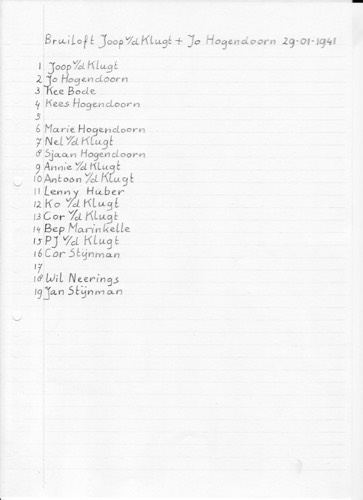 Bruiloft Joop v/d Klugt + Jo Hogendoorn 29-01-1941
1 Joop v/d Klugt
2 Jo Hogendoorn
3 Kee Bode
4 Kees Hogendoorn
5
6 Marie Hogendoorn
7 Nel v/d Klugt
8 Sjaan Hogendoorn
9 Annie v/d Klugt
10 Antoon v/d Klugt
11 Lenny Huber
12 Ko v/d Klugt
13 Cor v/d Klugt
14 Bep Marinkelle
15 PJ v/d Klugt
16 Cor Stijnman
17
18 Wil Neerings
19 Jan Stijnman